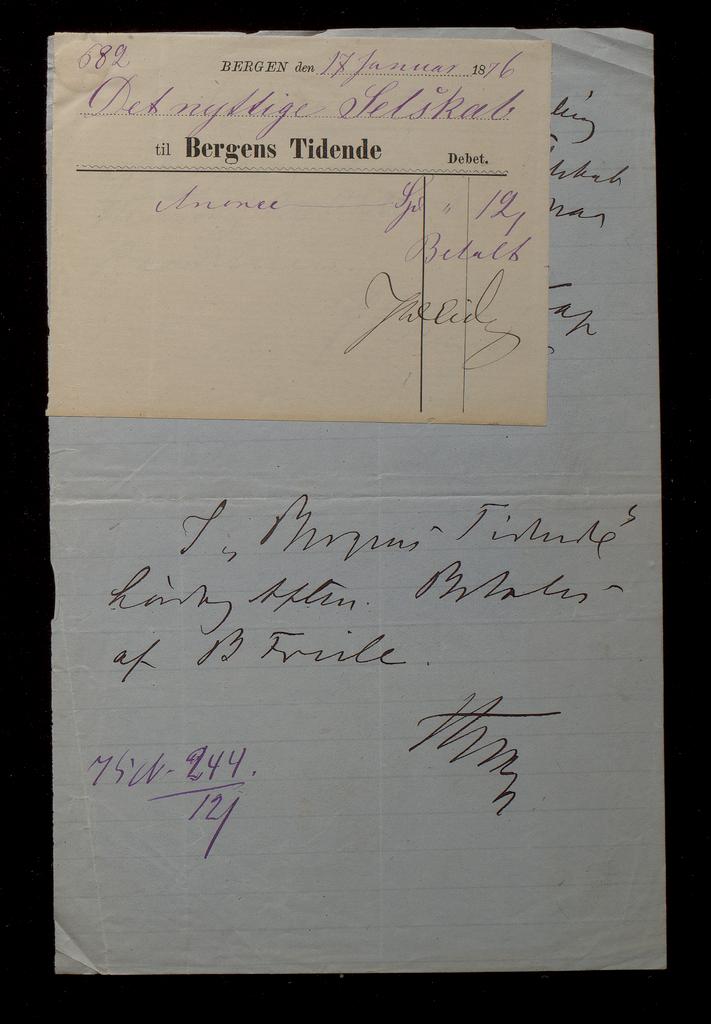 682
BERGEN den 17 Januar 1876
Det nyttige Selskab
til Bergens Tidende
Debet.
Anonce Spd " 12
Betalt
I "Bergens Tidende"
Lørdag Aften. Betales
af B Friele.
244.
12